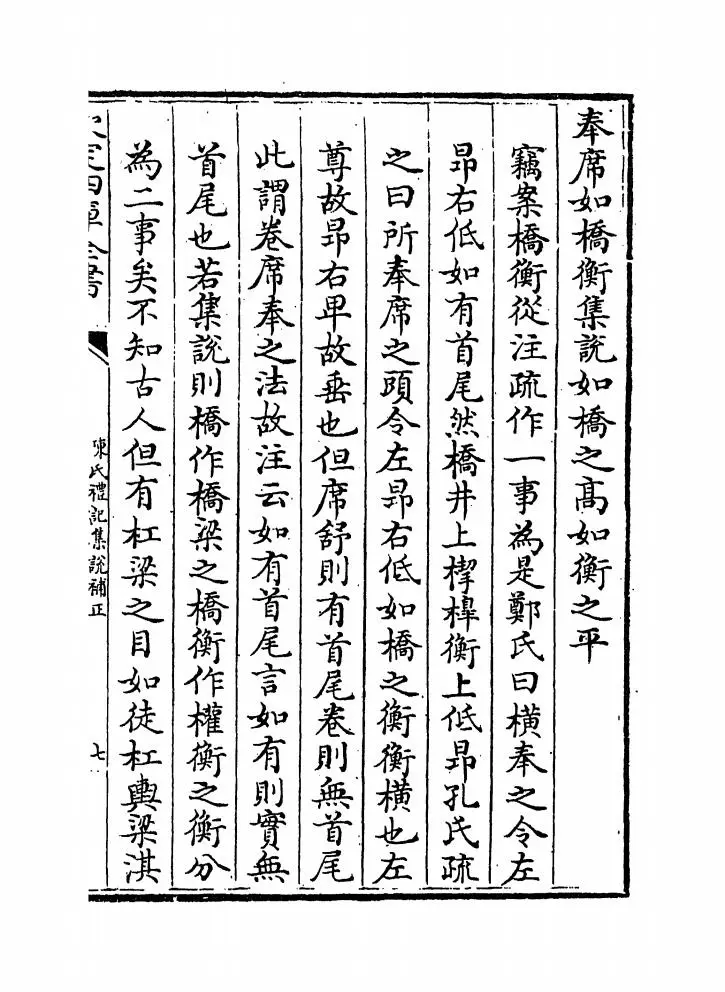 奉席如橋衡集說如橋之髙如衡之平
竊案橋衡從注疏作一事為是鄭氏曰横奉之令左
昻右低如有首尾然橋井上㮮橰衡上低昻孔氏疏
之曰所奉席之頭令左昻右低如橋之衡衡横也左
尊故昻右卑故垂也但席舒則有首尾卷則無首尾
此謂卷席奉之法故注云如有首尾言如有則實無
首尾也若集說則橋作橋梁之橋衡作權衡之衡分
為二事矣不知古人但有杠梁之目如徒杠輿梁淇
欽定四庫全書
陳氏禮記集說補正
七